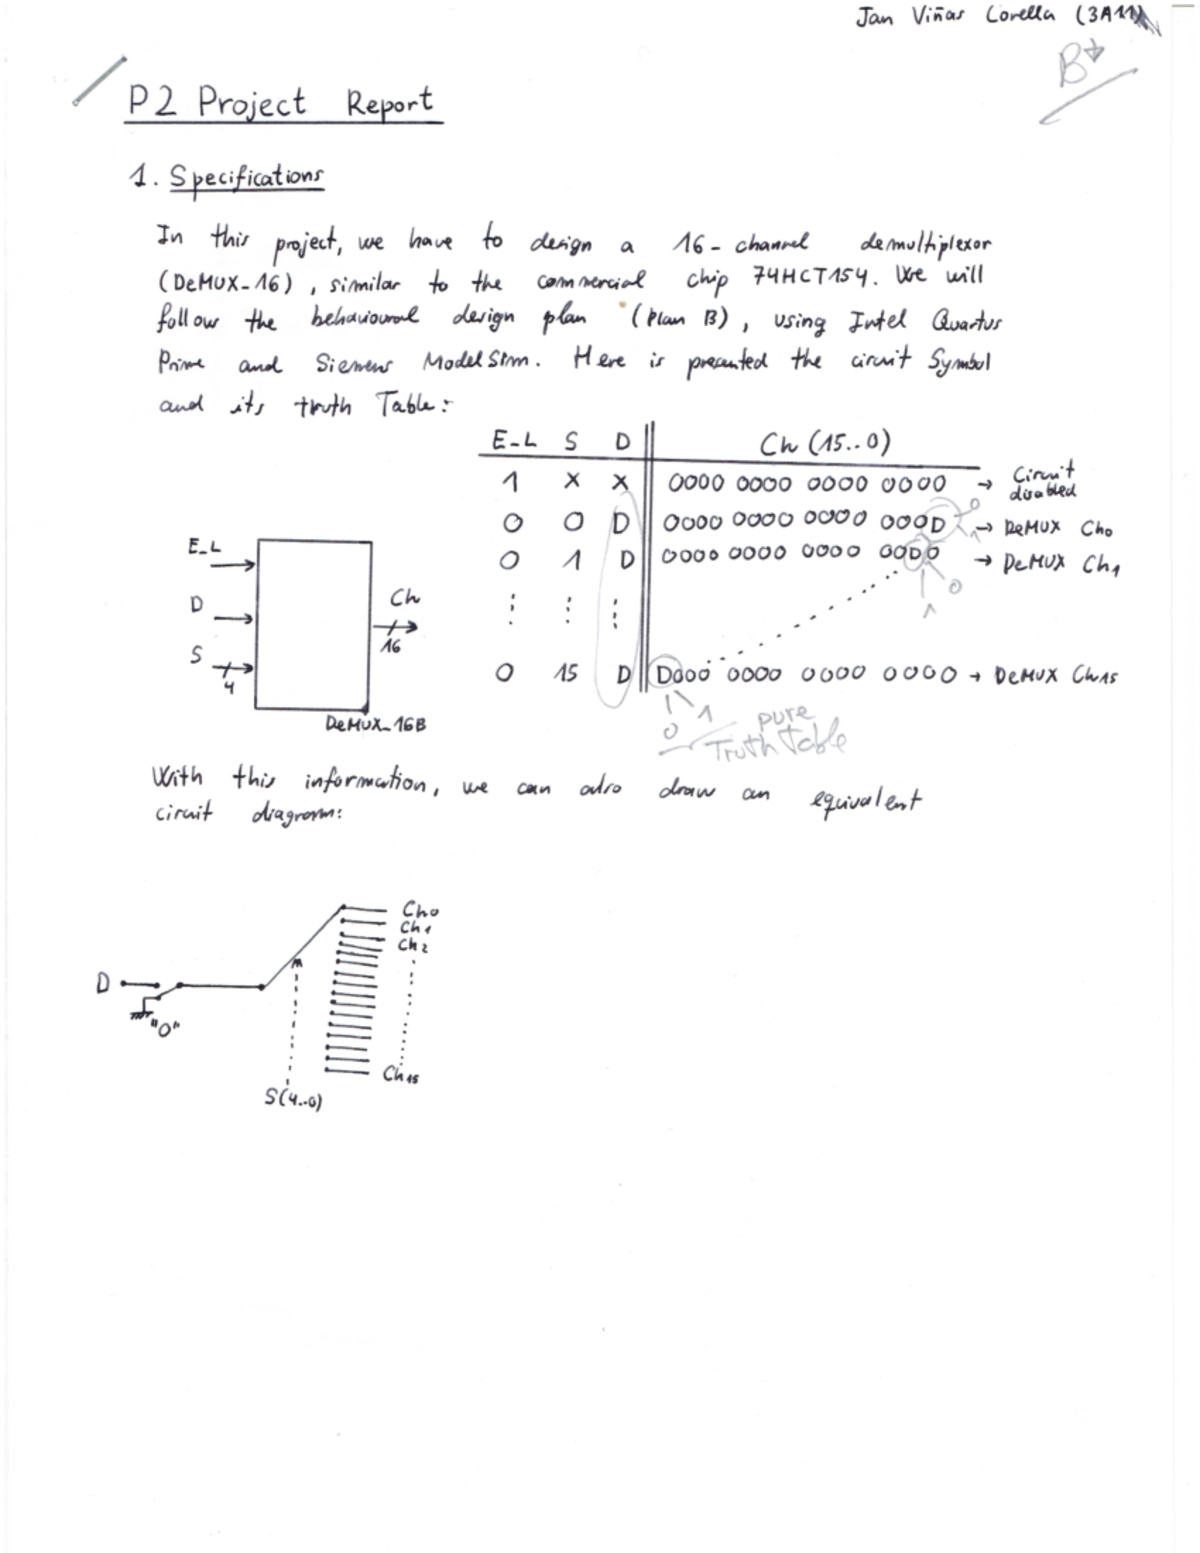 Jan Viñas Corella (3A11)
B+
P2 Project Report
1. Specifications
In this project, we have to design a 16-channel demultiplexor
(DeMUX-16), similar to the commercial chip 74HCT154. We will
follow the behavioural design plan (Plan B), using Intel Quartus
Prime and Siemens ModelSim. Here is presented the circuit Symbol
and its truth Table:
E_L S D Ch (15..0)
1 X X 0000 0000 0000 0000 → Circuit disabled
0 0 D 0000 0000 0000 000D → DeMUX Ch0
0 1 D 0000 0000 0000 00D0 → DeMUX Ch1
0 15 D D000 0000 0000 0000 → DeMUX Ch15
0 1
0 1
0 1
pure
Truth table
E_L
D
S
4
Ch
16
DeMUX_16B
With this information, we can also draw an equivalent
circuit diagram:
D
"0"
S(4..0)
Ch0
Ch1
Ch2
Ch15